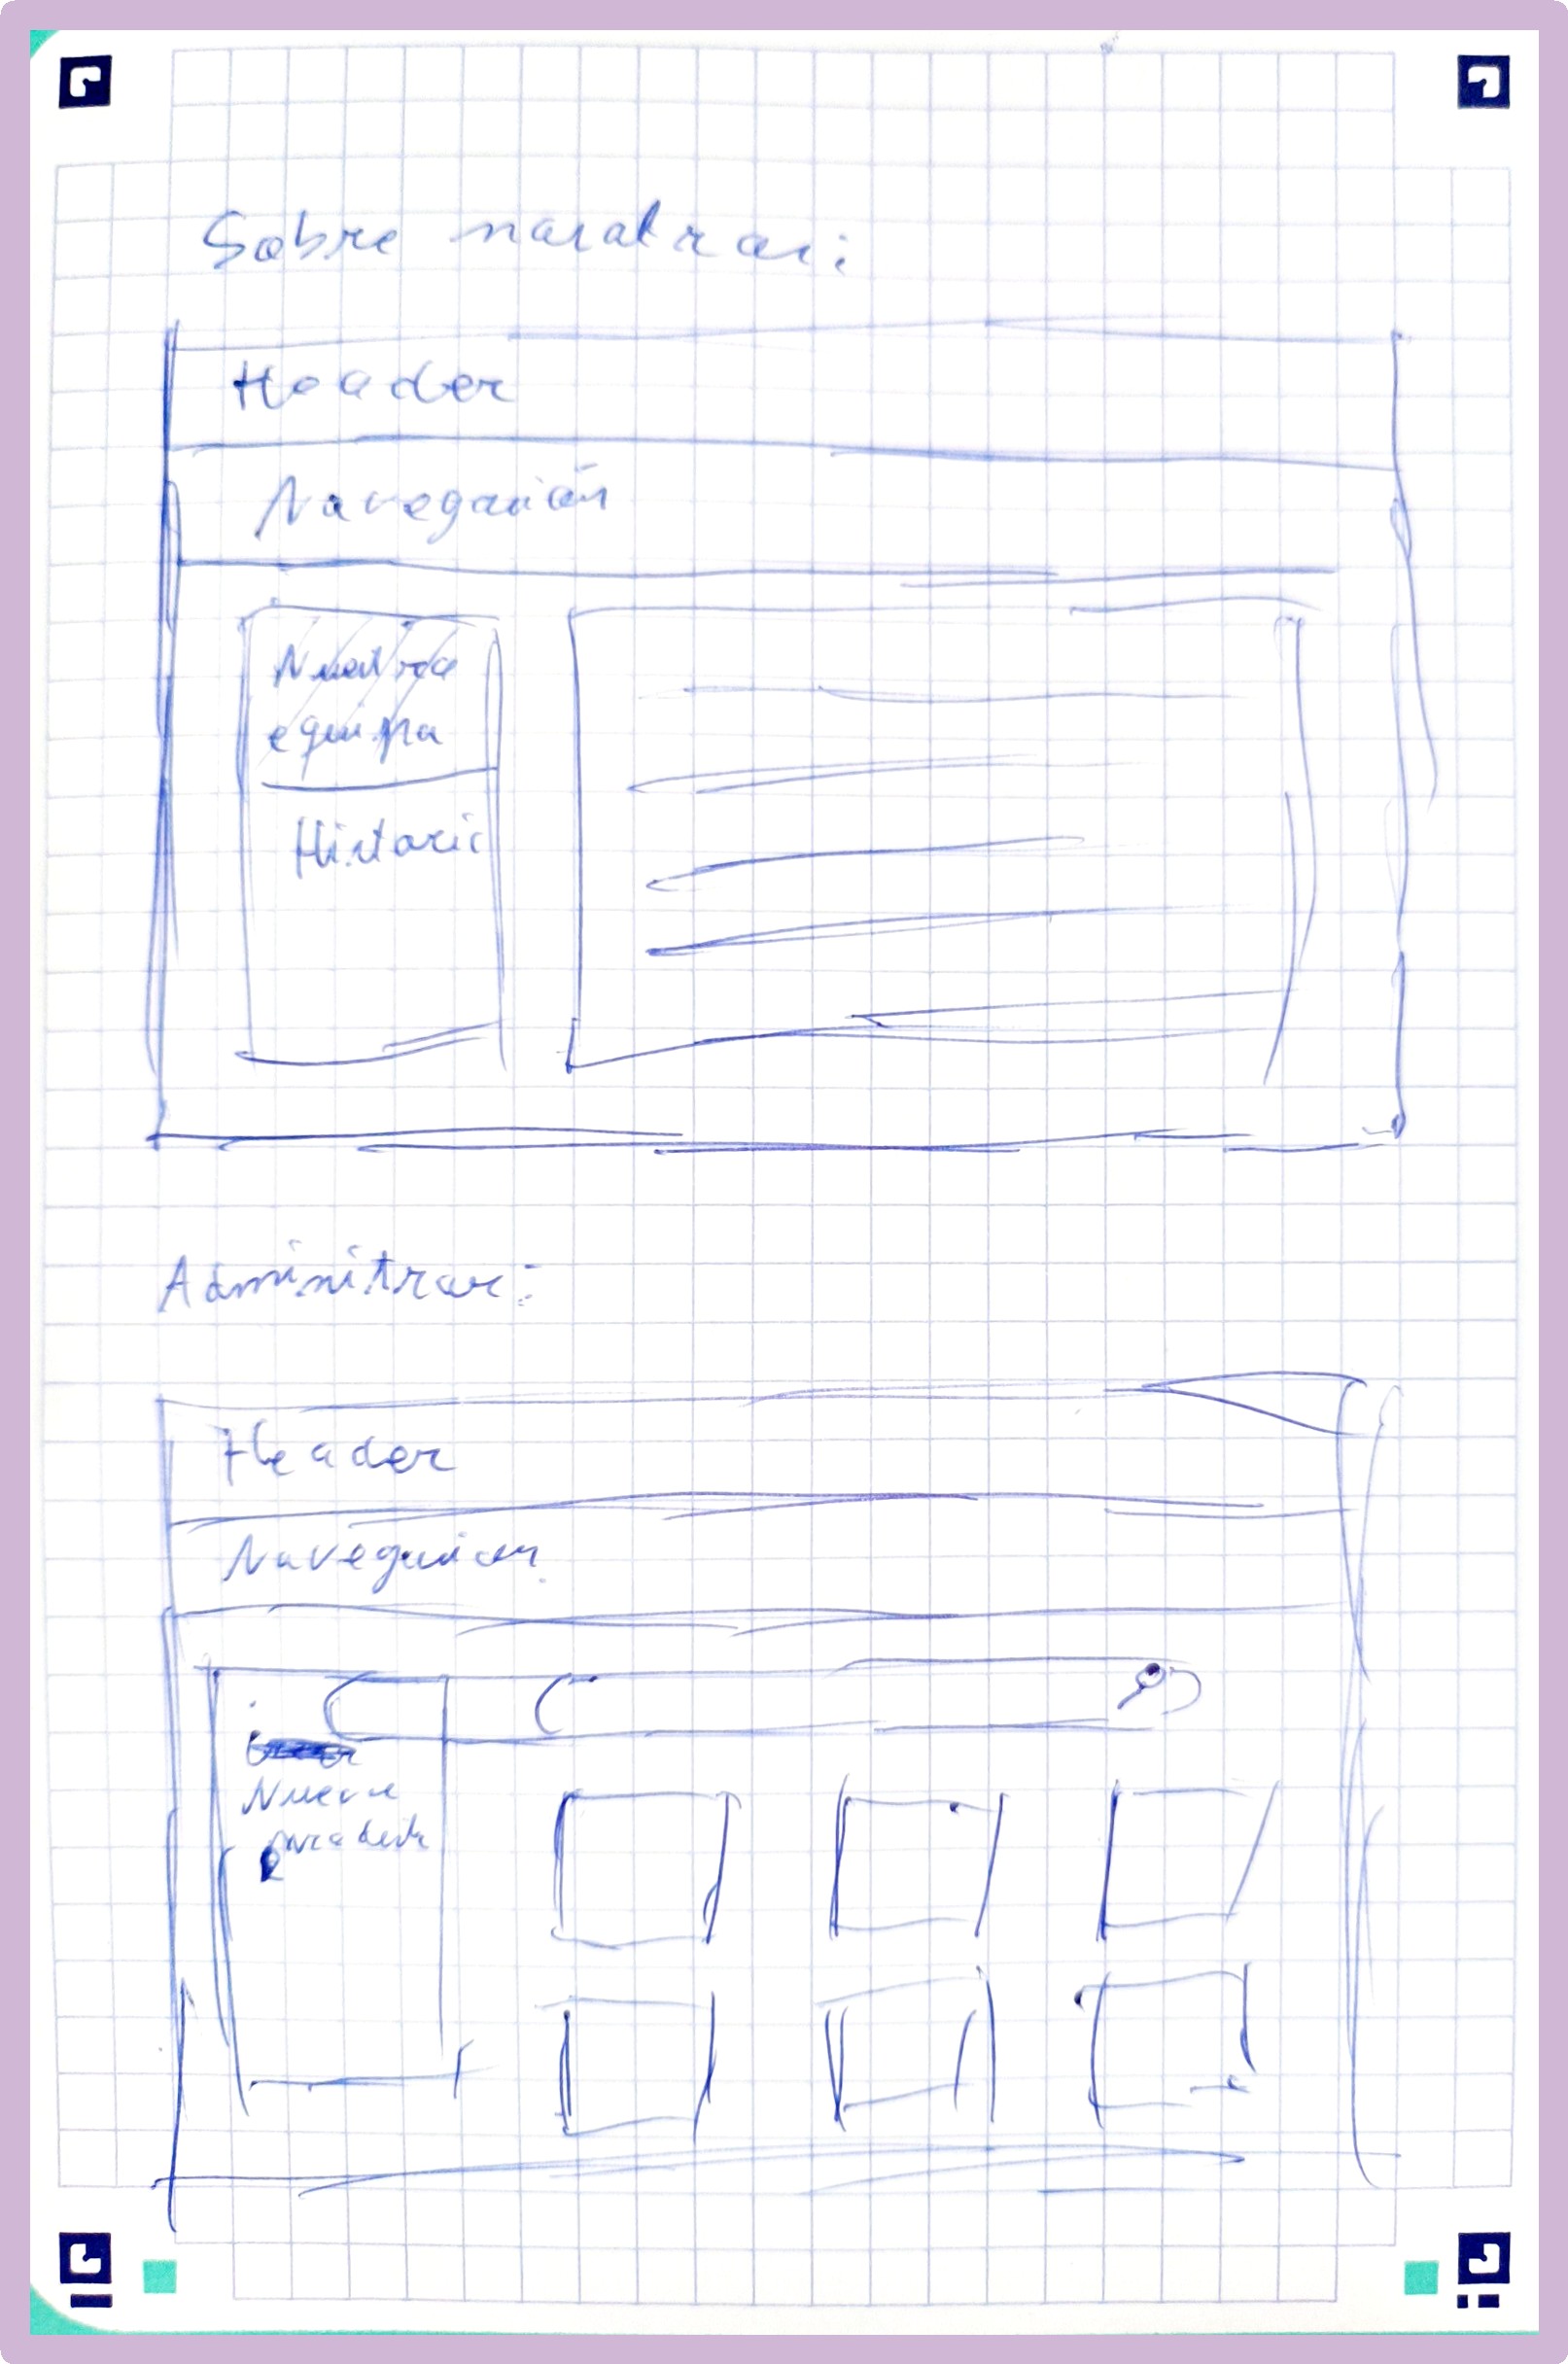 Sobre nosotros:
Header
Navegación
Nuestro
equipo
Historia
Administrar:
Header
Navegación
Nuevo
producto